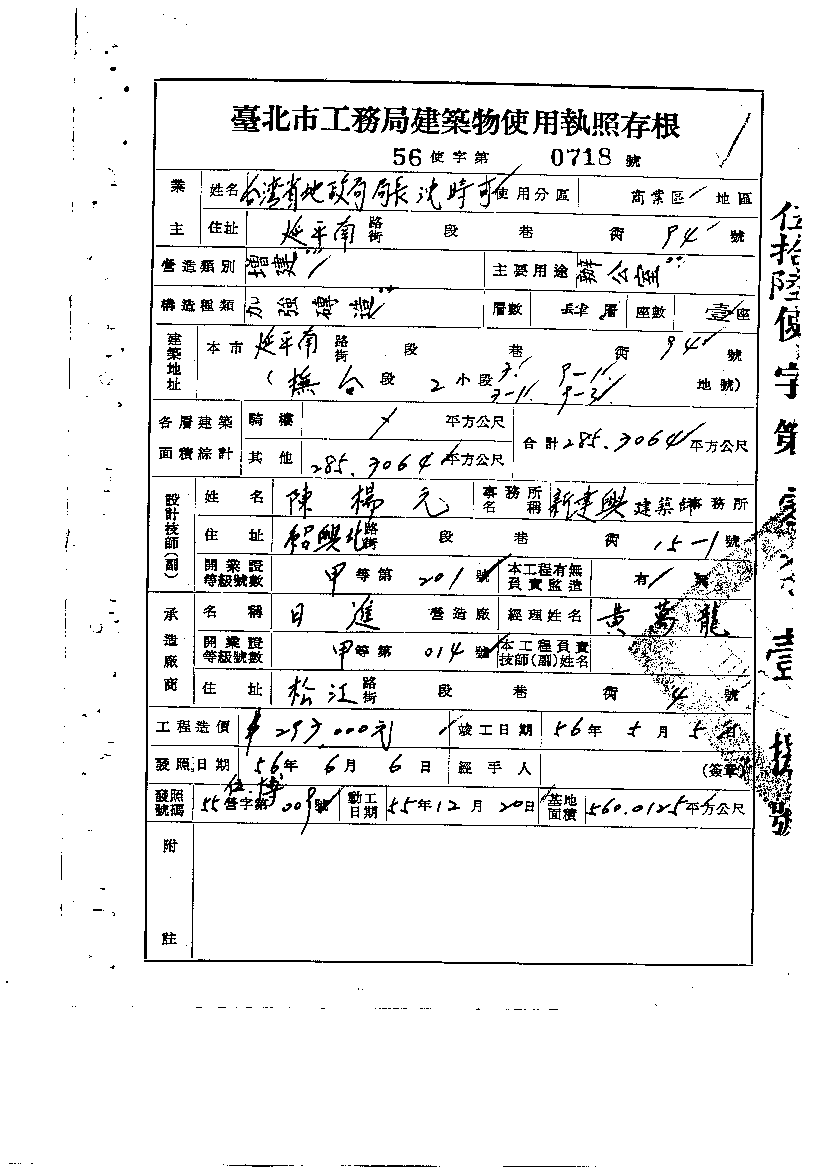 臺北市工務局建築物使用執照存根
56 使字第 0718 號
業主 姓名 台湾省地政局局長沈時可 使用分區 商業區 地區
住址 延平南 路街 段 巷 衖 94 號
營造類別 增建 主要用途 辦公室
構造種類 加強磚造 層數 層 座數 壹座
建築地址 本市 延平南 路街 段 巷 衖 94 號
(撫台段 2 小段 3. 3-1. 9-1. 9-3. 地號)
各層建築面積綜計 騎樓 平方公尺 合計 285.3064 平方公尺
其他 285.3064 平方公尺
設計技師(副) 姓名 陳楊元 事務所名稱 新建興建築師事務所
住址 紹興北 路街 段 巷 衖 15-1 號
開業證等級號數 甲等第 201 號 本工程有無負責監造 有 無
承造廠商 名稱 日進 營造廠 經理姓名 黃萬龍
開業證等級號數 甲等第 014 號 本工程負責技師(副)姓名
住址 松江 路街 段 巷 衖 4 號
工程造價 竣工日期 56年 5月 5日
發照日期 56年 6月 6日 經手人 (簽章)
發照號碼 55 營字第 009 號 動工日期 55年12月20日 基地面積 560.0125 平方公尺
附註
伍拾陸使字第
壹
號